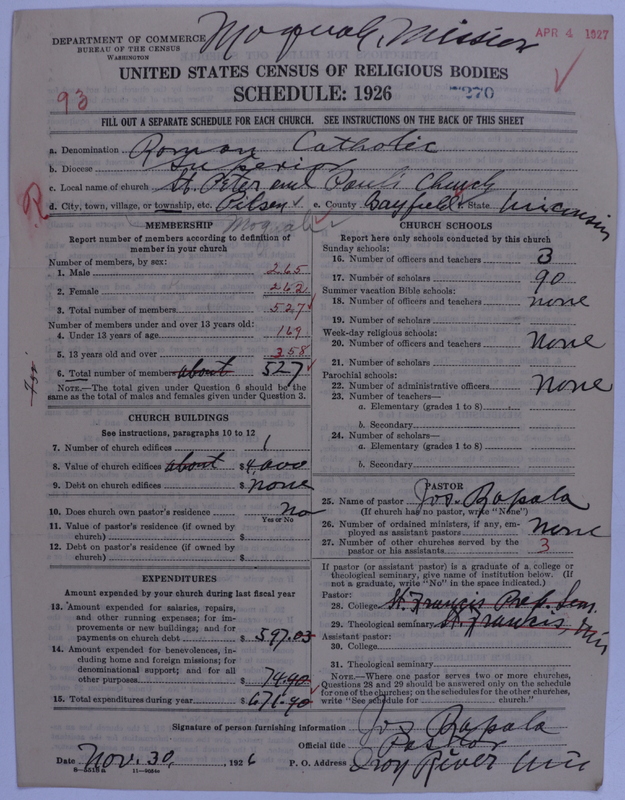 Moquah, Mission
DEPARTMENT OF COMMERCE
BUREAU OF THE CENSUS
WASHINGTON
APR 4 1927
UNITED STATES CENSUS OF RELIGIOUS BODIES
SCHEDULE: 1926
93
7270
FILL OUT A SEPARATE SCHEDULE FOR EACH CHURCH. SEE INSTRUCTIONS ON THE BACK OF THIS SHEET
a. Denomination Roman Catholic
b. Diocese Superior
c. Local name of church St. Peter and Paul's Church
d. City, town, village, or township, etc. Pilsen e. County Bayfield f. State Wisconsin
R
Moquah
MEMBERSHIP
Report number of members according to definition of member in your church
Number of members, by sex:
1. Male 265
2. Female 262
3. Total number of members 527
Number of members under and over 13 years old:
4. Under 13 years of age 169
5. 13 years old and over 358
6. Total number of members about 527
NOTE.—The total given under Question 6 should be the same as the total of males and females given under Question 3.
CHURCH BUILDINGS
See instructions, paragraphs 10 to 12
7. Number of church edifices 1
8. Value of church edifices about $ 4,000
9. Debt on church edifices $ none
10. Does church own pastor's residence? no
Yes or No
11. Value of pastor's residence (if owned by church) $
12. Debt on pastor's residence (if owned by church) $
EXPENDITURES
Amount expended by your church during last fiscal year
13. Amount expended for salaries, repairs, and other running expenses; for improvements or new buildings; and for payments on church debt $ 597.03
14. Amount expended for benevolences, including home and foreign missions; for denominational support; and for all other purposes $ 74.90
15. Total expenditures during year $ 671.90
CHURCH SCHOOLS
Report here only schools conducted by this church
Sunday schools:
16. Number of officers and teachers 3
17. Number of scholars 90
Summer vacation Bible schools:
18. Number of officers and teachers none
19. Number of scholars
Week-day religious schools:
20. Number of officers and teachers None
21. Number of scholars
Parochial schools:
22. Number of administrative officers None
23. Number of teachers—
a. Elementary (grades 1 to 8)
b. Secondary
24. Number of scholars—
a. Elementary (grades 1 to 8)
b. Secondary
PASTOR
25. Name of pastor Jos Rapala
(If church has no pastor, write "None")
26. Number of ordained ministers, if any, employed as assistant pastors None
27. Number of other churches served by the pastor or his assistants 3
If pastor (or assistant pastor) is a graduate of a college or theological seminary, give name of institution below. (If not a graduate, write "No" in the space indicated.)
Pastor:
28. College St. Francis Prep. Sem.
29. Theological seminary St. Francis, Wis
Assistant pastor:
30. College
31. Theological seminary
NOTE.—Where one pastor serves two or more churches, Questions 28 and 29 should be answered only on the schedule for one of the churches; on the schedules for the other churches, write "See schedule for church."
Signature of person furnishing information Jos Rapala
Official title Pastor
Date Nov. 30, 1926 P. O. Address Iron River Wis
8—5518a 11—9684